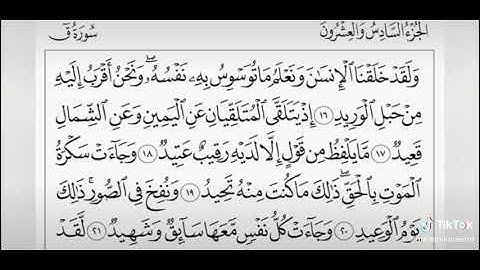 الجزء السادس والعشرون
سورة ق
وَلَقَدْ خَلَقْنَا الْإِنسَٰنَ وَنَعْلَمُ مَا تُوَسْوِسُ بِهِۦ نَفْسُهُۥ ۖ وَنَحْنُ أَقْرَبُ إِلَيْهِ
مِنْ حَبْلِ الْوَرِيدِ ١٦ إِذْ يَتَلَقَّى الْمُتَلَقِّيَانِ عَنِ الْيَمِينِ وَعَنِ الشِّمَالِ
قَعِيدٌ ١٧ مَّا يَلْفِظُ مِن قَوْلٍ إِلَّا لَدَيْهِ رَقِيبٌ عَتِيدٌ ١٨ وَجَآءَتْ سَكْرَةُ
الْمَوْتِ بِالْحَقِّ ۖ ذَٰلِكَ مَا كُنتَ مِنْهُ تَحِيدُ ١٩ وَنُفِخَ فِي الصُّورِ ۚ ذَٰلِكَ
يَوْمُ الْوَعِيدِ ٢٠ وَجَآءَتْ كُلُّ نَفْسٍ مَّعَهَا سَآئِقٌ وَشَهِيدٌ ٢١ لَّقَدْ
TikTok